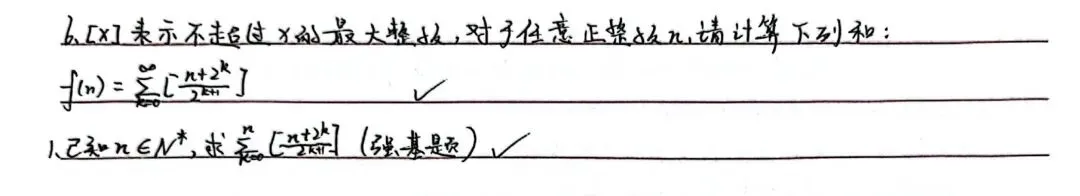 6.[x]表示不超过x的最大整数,对于任意正整数n,请计算下列和:
f(n)=∑_{k=0}^{∞}[\frac{n+2^k}{2^{k+1}}] ✓
1.已知n∈N*,求∑_{k=0}^{n}[\frac{n+2^k}{2^{k+1}}](强基题) ✓